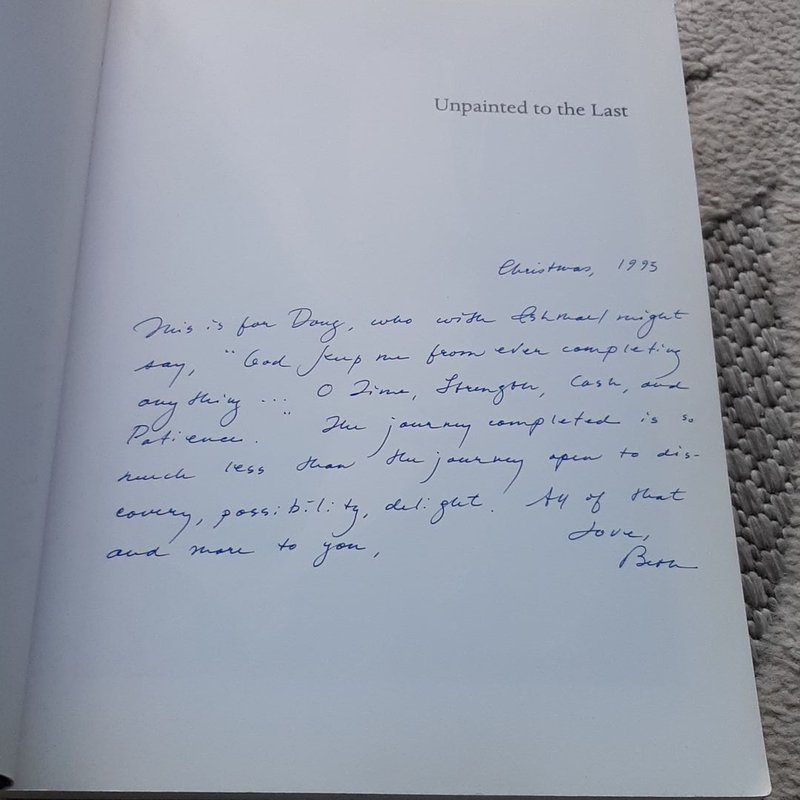 Unpainted to the Last
Christmas, 1995
This is for Doug, who with Ishmael might
say, "God keep me from ever completing
anything ... O Time, Strength, Cash, and
Patience." The journey completed is so
much less than the journey open to dis-
covery, possibility, delight. All of that
and more to you,
Love,
Beth